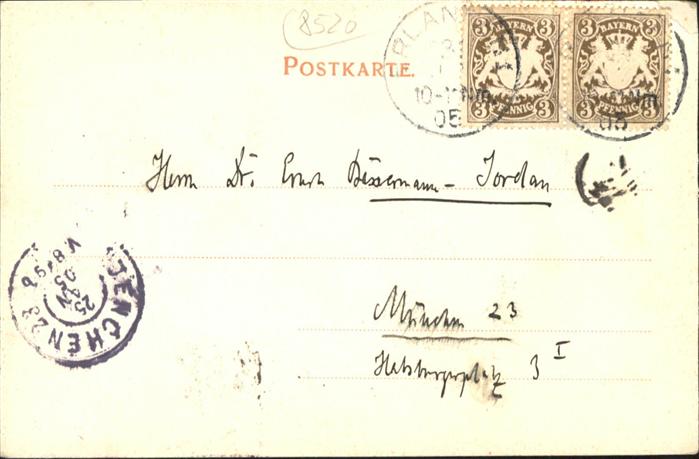 8520
POSTKARTE.
3 BAYERN 3
3 PFENNIG 3
3 BAYERN 3
3 PFENNIG 3
05
05
Herrn Dr. Ernst Bassermann-Jordan
München 23
Habsburgerplatz 3 I
MÜENCHEN 23
25
05